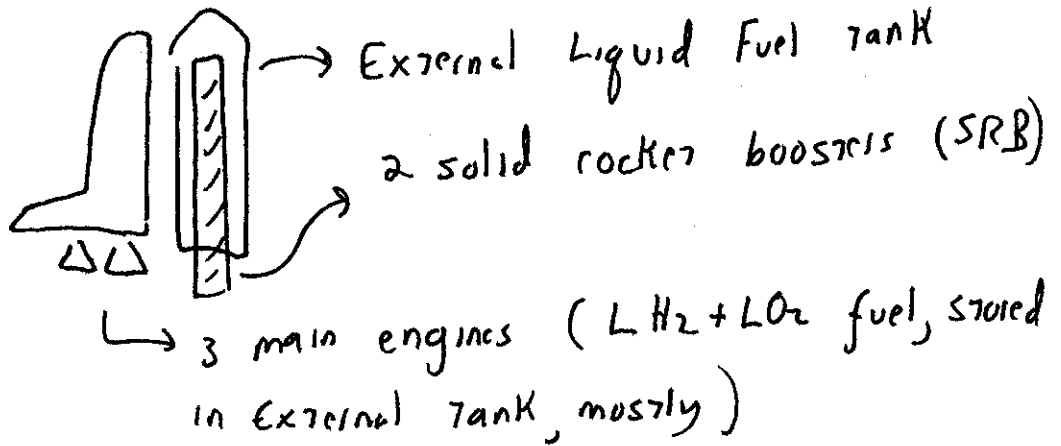 External Liquid Fuel Tank
2 solid rocket boosters (SRB)
3 main engines (LH2+LO2 fuel, stored
in External Tank, mostly)